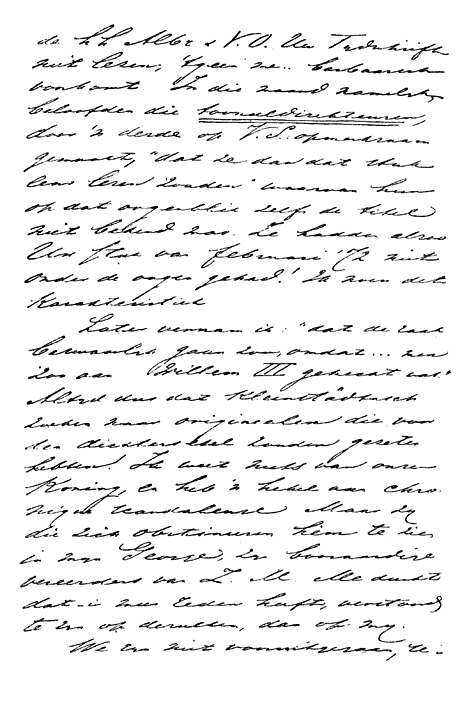 de h h Albr & V. O. Uw Tydschrift
niet lezen, 't geen me barbaarsch
voorkomt. In die maand namelyk,
beloofden die tooneeldirekteuren,
door 'n derde op V. S. opmerkzaam
gemaakt, "dat ze dan dat stuk
eens lezen zouden" waarvan hun
op dat oogenblik zelfs de titel
niet bekend was. Ze hadden alzoo
Uw stuk van februari '72 niet
onder de oogen gehad! Ik noem dat
karakteristiek
Later vernam ik: "dat de zaak
bezwaarlyk gaan zou, omdat ... men
zoo aan Willem III gehecht was."
Altyd dus dat Kleinstädtisch
zoeken naar origineelen die voor
den dichterezel zouden gezeten
hebben! Ik weet niets van onzen
Koning, en heb 'n hekel aan chro-
nique scandaleuse Maar zy
die zich obstineeren hem te zien
in myn George, zyn byzondere
vereerders van Z. M. Me dunkt
dat-i meer reden heeft, verstoord
te zyn op dezulken, dan op my.
We zyn niet vooruitgegaan,